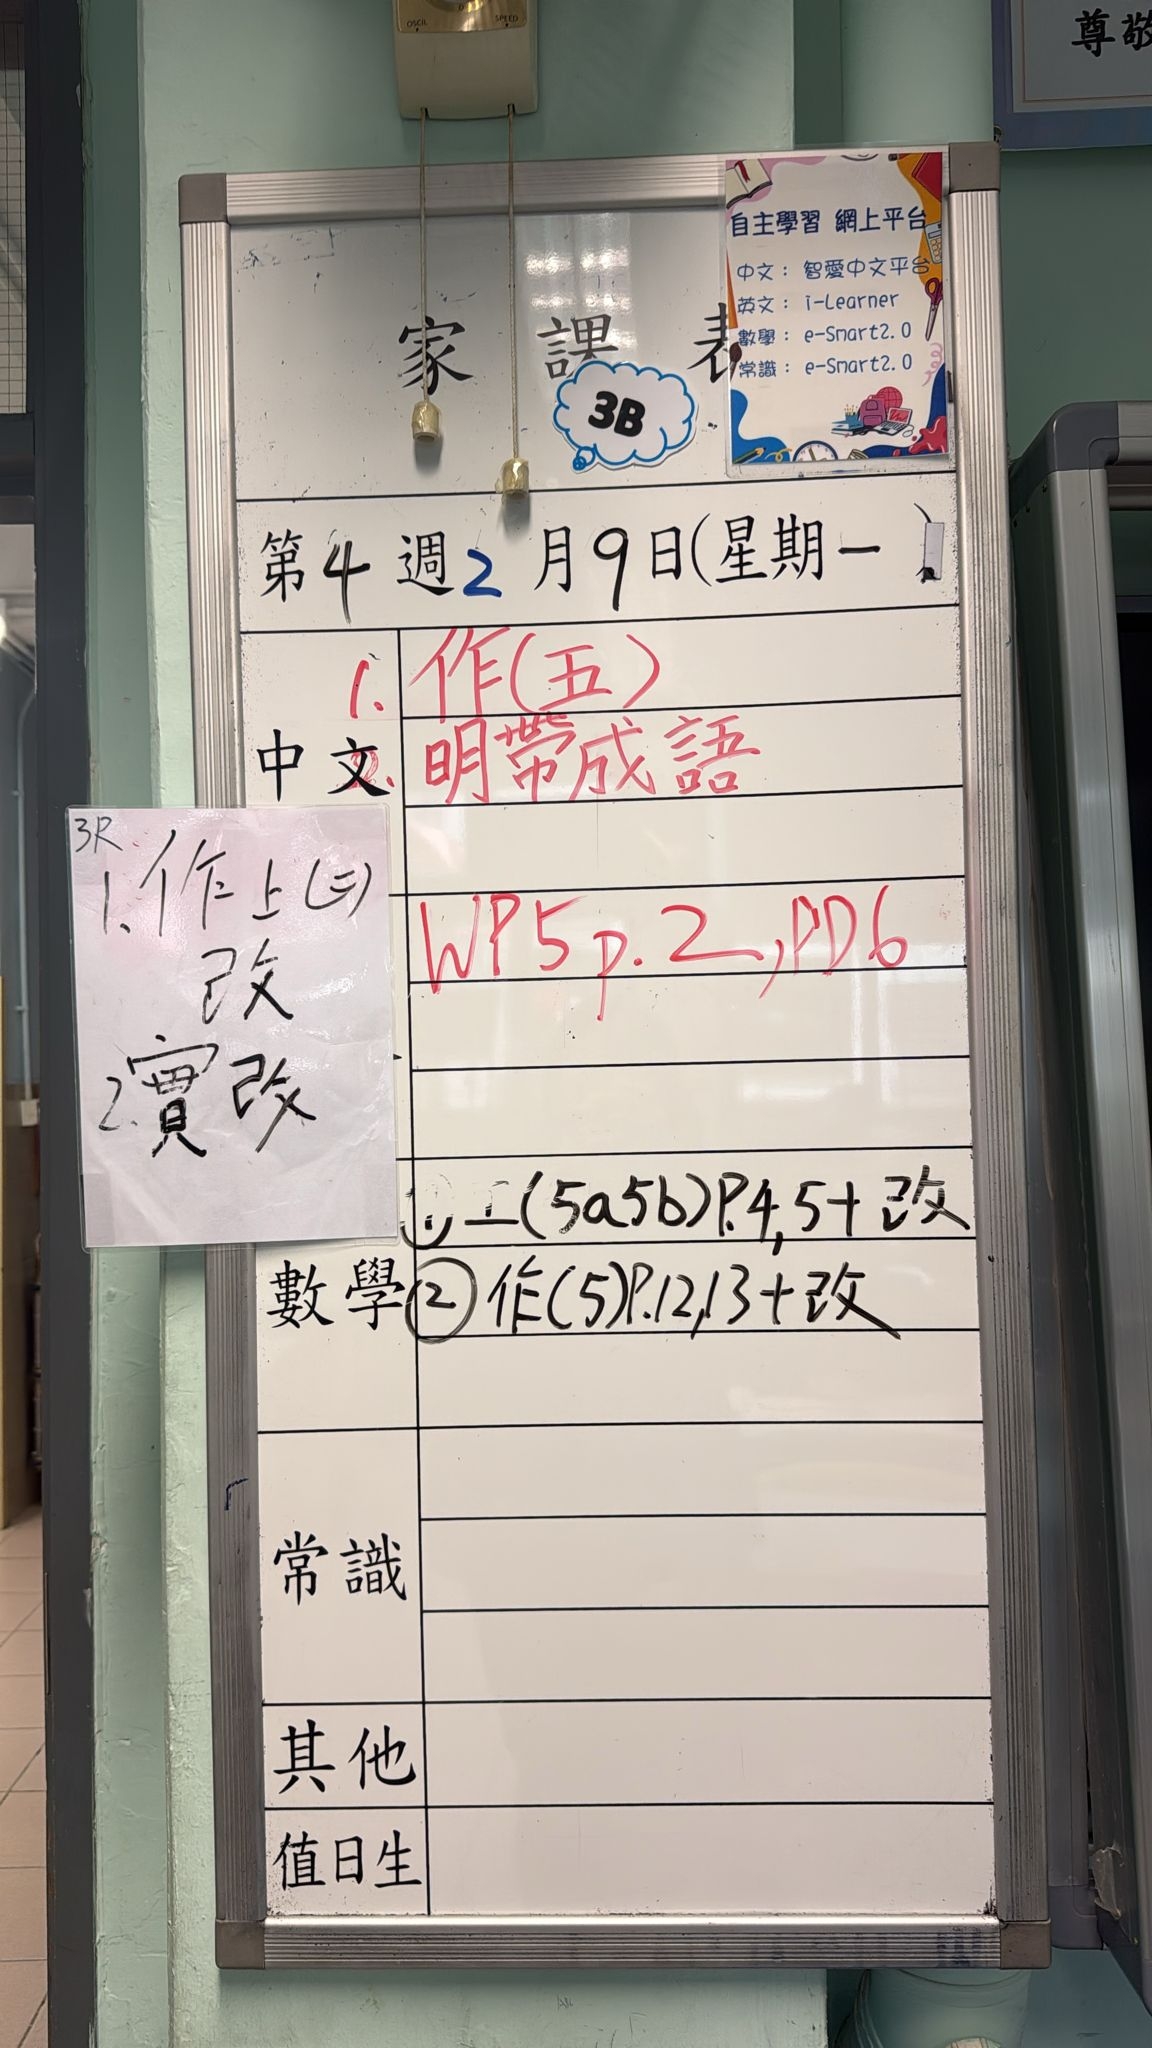 OSCIL SPEED
尊敬
自主學習 網上平台
中文： 智愛中文平台
英文： i-Learner
數學： e-Smart2.0
常識： e-Smart2.0
家課表
3B
第4週2月9日(星期一)
中文
1. 作(五)
2. 明帶成語
3R
1.作上(三)
改
2.實改
WP5 p.2,PD6
數學
① 工(5a5b)P.4,5+改
② 作(5)P.12,13+改
常識
其他
值日生